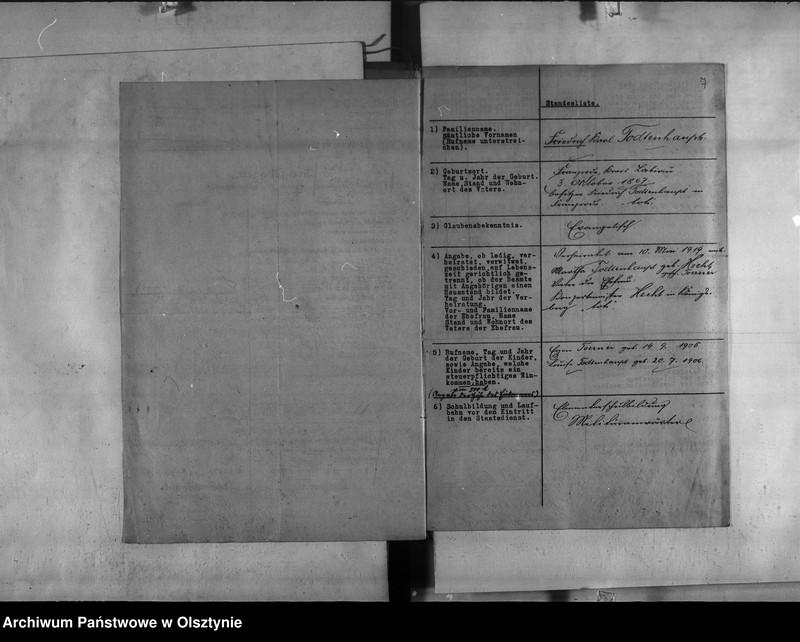 7
Standesliste.
1) Familienname.
sämtliche Vornamen
(Rufname unterstrei-
chen).
Friedrich Karl Todtenhaupt
2) Geburtsort.
Tag u. Jahr der Geburt.
Name, Stand und Wohn-
ort des Vaters.
3. Oktober 1867
Besitzer Friedrich Todtenhaupt in
tot.
3) Glaubensbekenntnis.
Evangelisch
4) Angabe, ob ledig, ver-
heiratet, verwitwet,
geschieden, auf Lebens-
zeit gerichtlich ge-
trennt, ob der Beamte
mit Angehörigen einen
Hausstand bildet.
Tag und Jahr der Ver-
heiratung.
Vor- und Familienname
der Ehefrau, Name
Stand und Wohnort des
Vaters der Ehefrau.
Verheiratet am 10. Mai 1919 mit
Martha Todtenhaupt geb. Hecht
Vater der Ehefrau
Hecht in Königs-
berg tot
5) Rufname, Tag und Jahr
der Geburt der Kinder,
sowie Angabe, welche
Kinder bereits ein
steuerpflichtiges Ein-
kommen haben.
geb. 14. 9. 1905
Todtenhaupt geb. 20. 7. 1906
6) Schulbildung und Lauf-
bahn vor dem Eintritt
in den Staatsdienst.
Elementarschulbildung
Militäranwärter
Archiwum Państwowe w Olsztynie